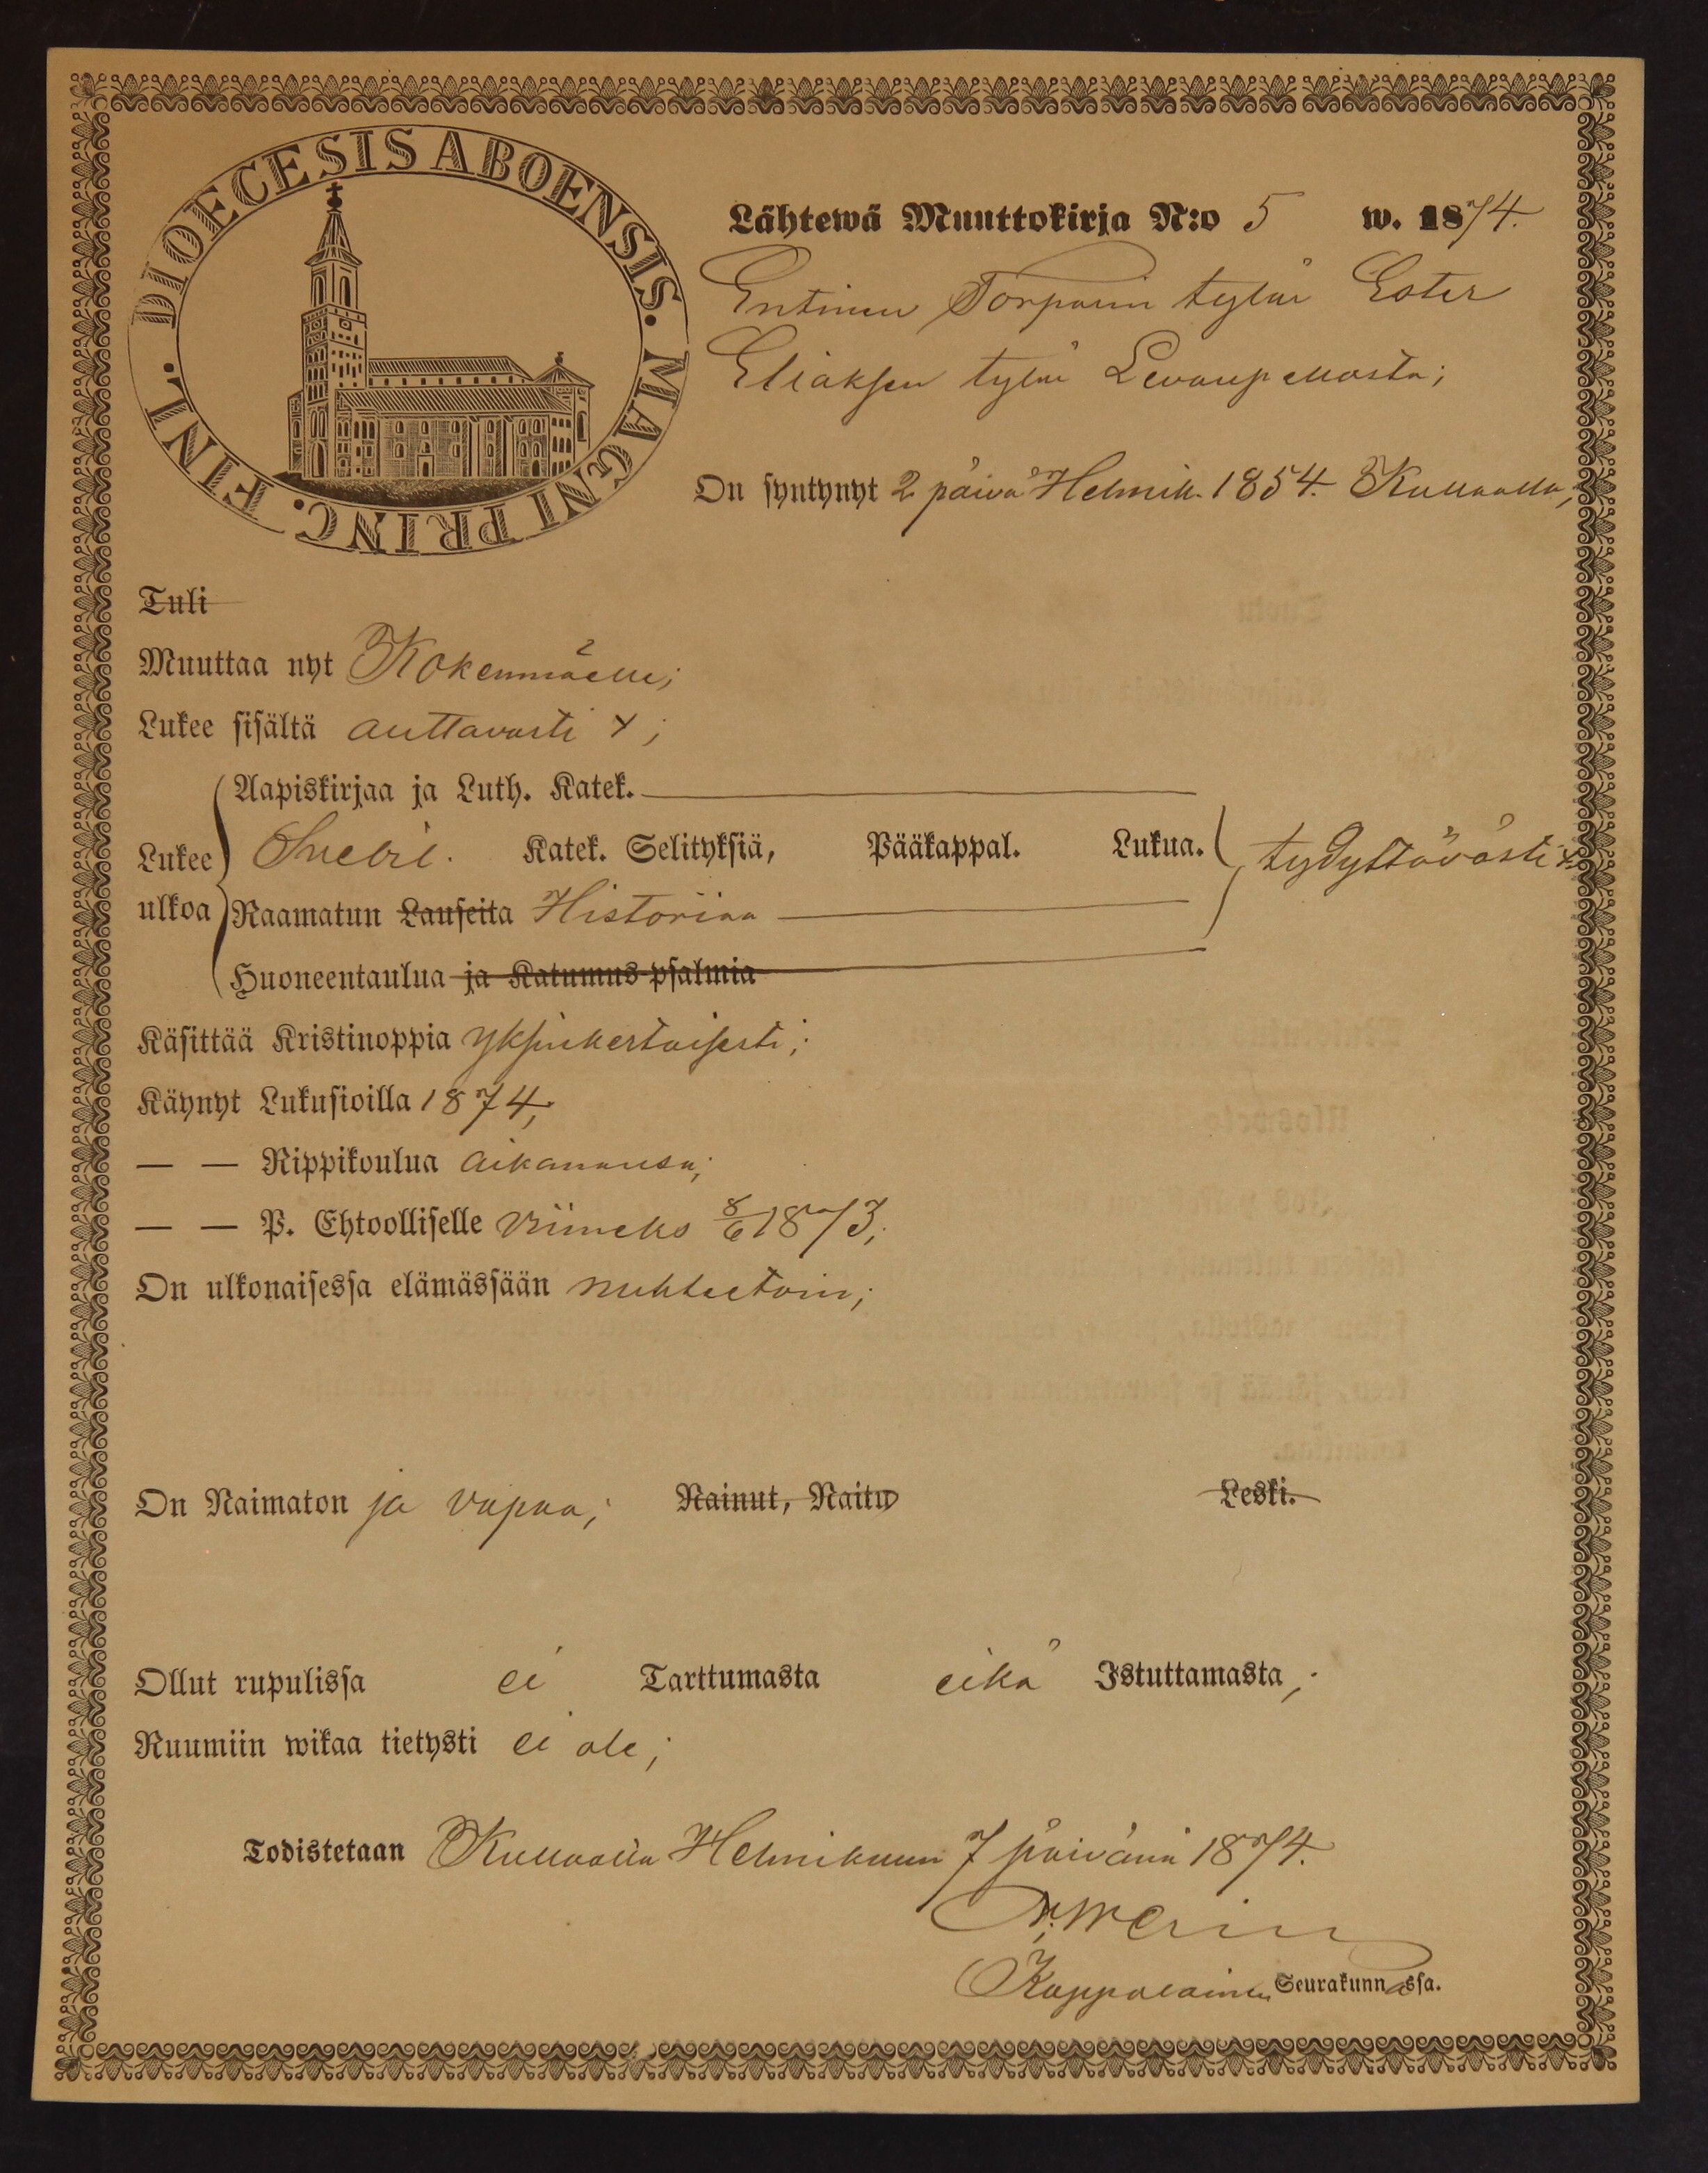 DIOECESIS ABOENSIS. MAGNI PRINC. FINL.
Lähtewä Muuttokirja N:o 5 w. 1874.
Entinen Torparin tytär Ester
Eliaksen tytär Levanpellosta;
On syntynyt 2 päivä Helmik. 1854. Kullaalla,
Tuli
Muuttaa nyt Kokenmäelle;
Lukee sisältä auttavasti ;
Aapiskirjaa ja Luth. Katek.
Lukee ulkoa Svebil. Katek. Selityksiä, Pääkappal. Lukua. tydyttävästi
Raamatun Lauseita Historiaa
Huoneentaulua ja Katumus-psalmia
Käsittää Kristinoppia yksinkertaisesti;
Käynyt Lukusioilla 1874,
— — Rippikoulua aikanansa;
— — P. Ehtoolliselle viimeks 8/6 1873;
On ulkonaisessa elämässään nuhteetoin;
On Naimaton ja vapaa; Nainut, Naitu Leski.
Ollut rupulissa ei Tarttumasta eikä Istuttamasta;
Ruumiin wikaa tietysti ei ole;
Todistetaan Kullaalla Helmikuun 7 päivänä 1874.
Kappalainen Seurakunnassa.